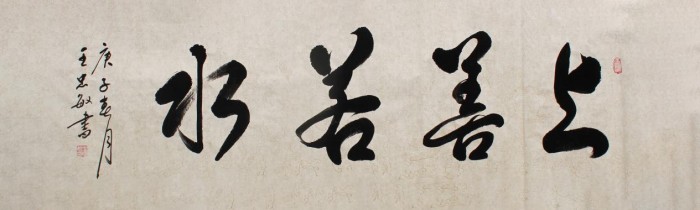 上善若水
庚子春月
王忠敏書